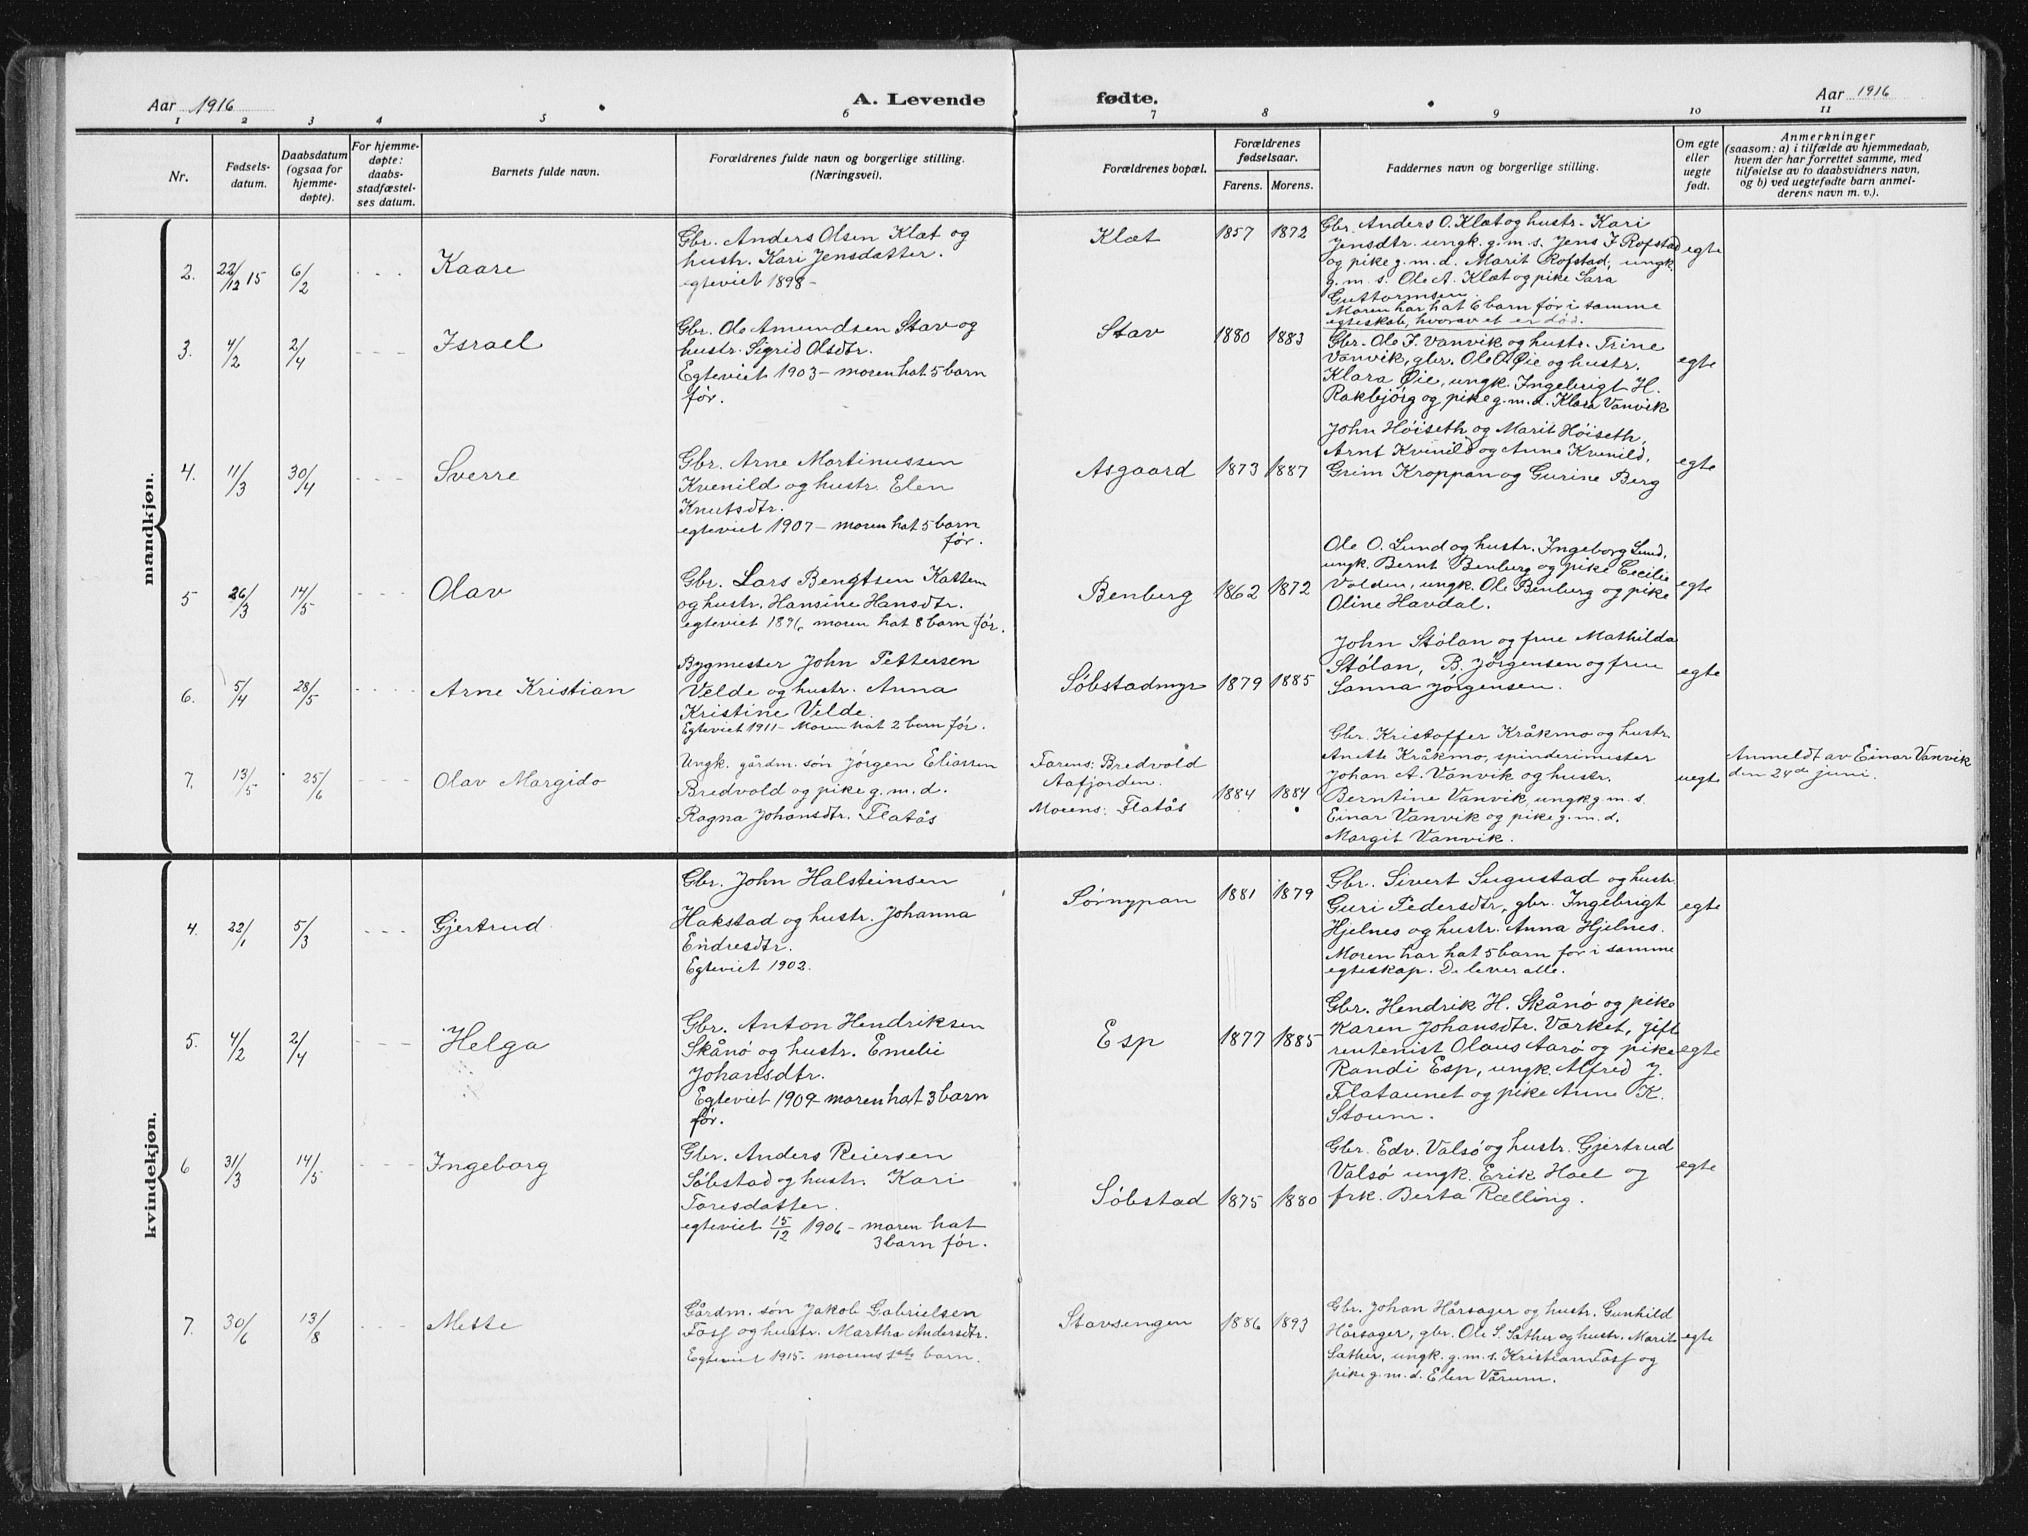 Aar 1916
A. Levende
fødte.
Aar 1916
1 2 3 4 5 6 7 8 9 10 11
Nr.
Fødsels-
datum.
Daabsdatum
(ogsaa for
hjemme-
døpte).
For hjemme-
døpte:
daabs-
stadfæstel-
ses datum.
Barnets fulde navn.
Forældrenes fulde navn og borgerlige stilling.
(Næringsvei).
Forældrenes bopæl.
Forældrenes
fødselsaar.
Farens. Morens.
Faddernes navn og borgerlige stilling.
Om egte
eller
uegte
født.
Anmerkninger
(saasom: a) i tilfælde av hjemmedaab,
hvem der har forrettet samme, med
tilføielse av to daabsvidners navn,
og b) ved uegtefødte barn anmel-
derens navn m. v.).
mandkjøn.
2. 22/12 15 6/2 Kaare
Gbr. Anders Olsen Klæt og
hustr. Kari Jensdatter.
egteviet 1898-
Klæt 1857 1872
Gbr. Anders O. Klæt og hustr. Kari
Jensdtr. ungk. g.m.s. Jens J Rofstad
og pike g.m.d. Marit Rofstad, ungk.
g.m.s. Ole A. Klæt og pike Sara
Guttormsen.
Moren har hat 6 barn før i samme
egteskab, hvorav et er død.
egte
3. 4/2 2/4 Israel
Gbr. Ole Amundsen Stav og
hustr. Sigrid Olsdtr.
Egteviet 1903 - moren hat 5 barn
før.
Stav 1880 1883
Gbr. Ole J. Vanvik og hustr. Trine
Vanvik, gbr. Ole Øie og hustr.
Klara Øie, ungk. Ingebrigt H.
Rakbjørg og pike g.m.d. Klara Vanvik
egte
4. 11/3 30/4 Sverre
Gbr. Arne Martinussen
Kvenild og hustr. Elen
Knutsdtr.
egteviet 1907 - moren hat 5 barn
før.
Asgaard 1873 1887
John Høiseth og Marit Høiseth,
Arnt Kvenild og Anne Kvenild,
Grim Kroppan og Gurine Berg
egte
5 26/3 14/5 Olav
Gbr. Lars Bengtsen Kattem
og hustr. Hansine Hansdtr.
egteviet 1896, moren hat 8 barn før.
Benberg 1862 1872
Ole O. Lund og hustr. Ingeborg Lund,
ungk. Bernt Benberg og pike Cecilie
Volden, ungk. Ole Benberg og pike
Oline Havdal.
egte
6. 5/4 28/5 Arne Kristian
Bygmester John Pettersen
Velde og hustr. Anna
Kristine Velde.
Egteviet 1911 - Moren hat 2 barn før.
Søbstadmyr 1879 1885
John Stølan og frue Mathilda
Stølan, B. Jørgensen og frue
Sanna Jørgensen.
egte
7. 13/5 25/6 Olav Margido
Ungk. gårdm. søn Jørgen Eliassen
Bredvold og pike g.m.d.
Ragna Johansdtr. Flatås
Farens: Bredvold
Aafjorden.
Morens: Flatås
1884 1884
Gbr. Kristoffer Kråkmo og hustr.
Anette Kråkmo, spinderimester
Johan A. Vanvik og hustr.
Berntine Vanvik, ungk. g.m.s.
Einar Vanvik og pike g.m.d.
Margit Vanvik.
uegte
Anmeldt av Einar Vanvik
den 24de juni.
kvindekjøn.
4. 22/1 5/3 Gjertrud
Gbr. John Halsteinsen
Hakstad og hustr. Johanna
Endresdtr.
Egteviet 1902.
Sørnypan 1881 1879
Gbr. Sivert Sugustad og hustr.
Guri Pedersdtr, gbr. Ingebrigt
Hjelnes og hustr. Anna Hjelnes.
Moren har hat 5 barn før i samme
egteskap. De lever alle.
egte
5. 4/2 2/4 Helga
Gbr. Anton Hendriksen
Skånø og hustr. Emelie
Johansdtr.
Egteviet 1909 - moren hat 3 barn
før.
Esp 1877 1885
Gbr. Hendrik H. Skånø og pike
Karen Johansdtr. Værket, gift
rentenist Olaus Aarø og pike
Randi Esp, ungk. Alfred J.
Flataunet og pike Anne K.
Stoum.
egte
6 31/3 14/5 Ingeborg
Gbr. Anders Reiersen
Søbstad og hustr. Kari
Toresdatter.
egteviet 15/12 1906 - moren hat
3 barn før.
Søbstad 1875 1880
Gbr. Edv. Valsø og hustr. Gjertrud
Valsø ungk. Erik Hoel og
frk. Berta Rælling.
egte
7. 30/6 13/8 Mette
Gårdm. søn Jakob Gabrielsen
Foss og hustr. Martha Andersdtr.
Egteviet 1915 - morens 1ste barn.
Stavsengen 1886 1893
Gbr. Johan Hårsager og hustr. Gunhild
Hårsager, gbr. Ole S. Sæther og hustr. Marit
Sæther, ungk. g.m.s. Kristian Foss og
pike g.m.d. Elen Vårum.
egte